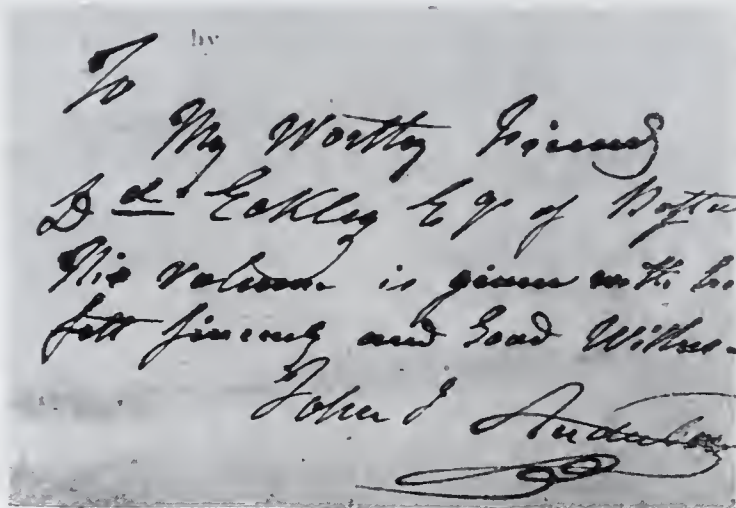 To
My Worthy Friend
Dd. Eakley Eqr of Boston
This volume is given with
felt sincerity and Good Wishes
John J Audubon